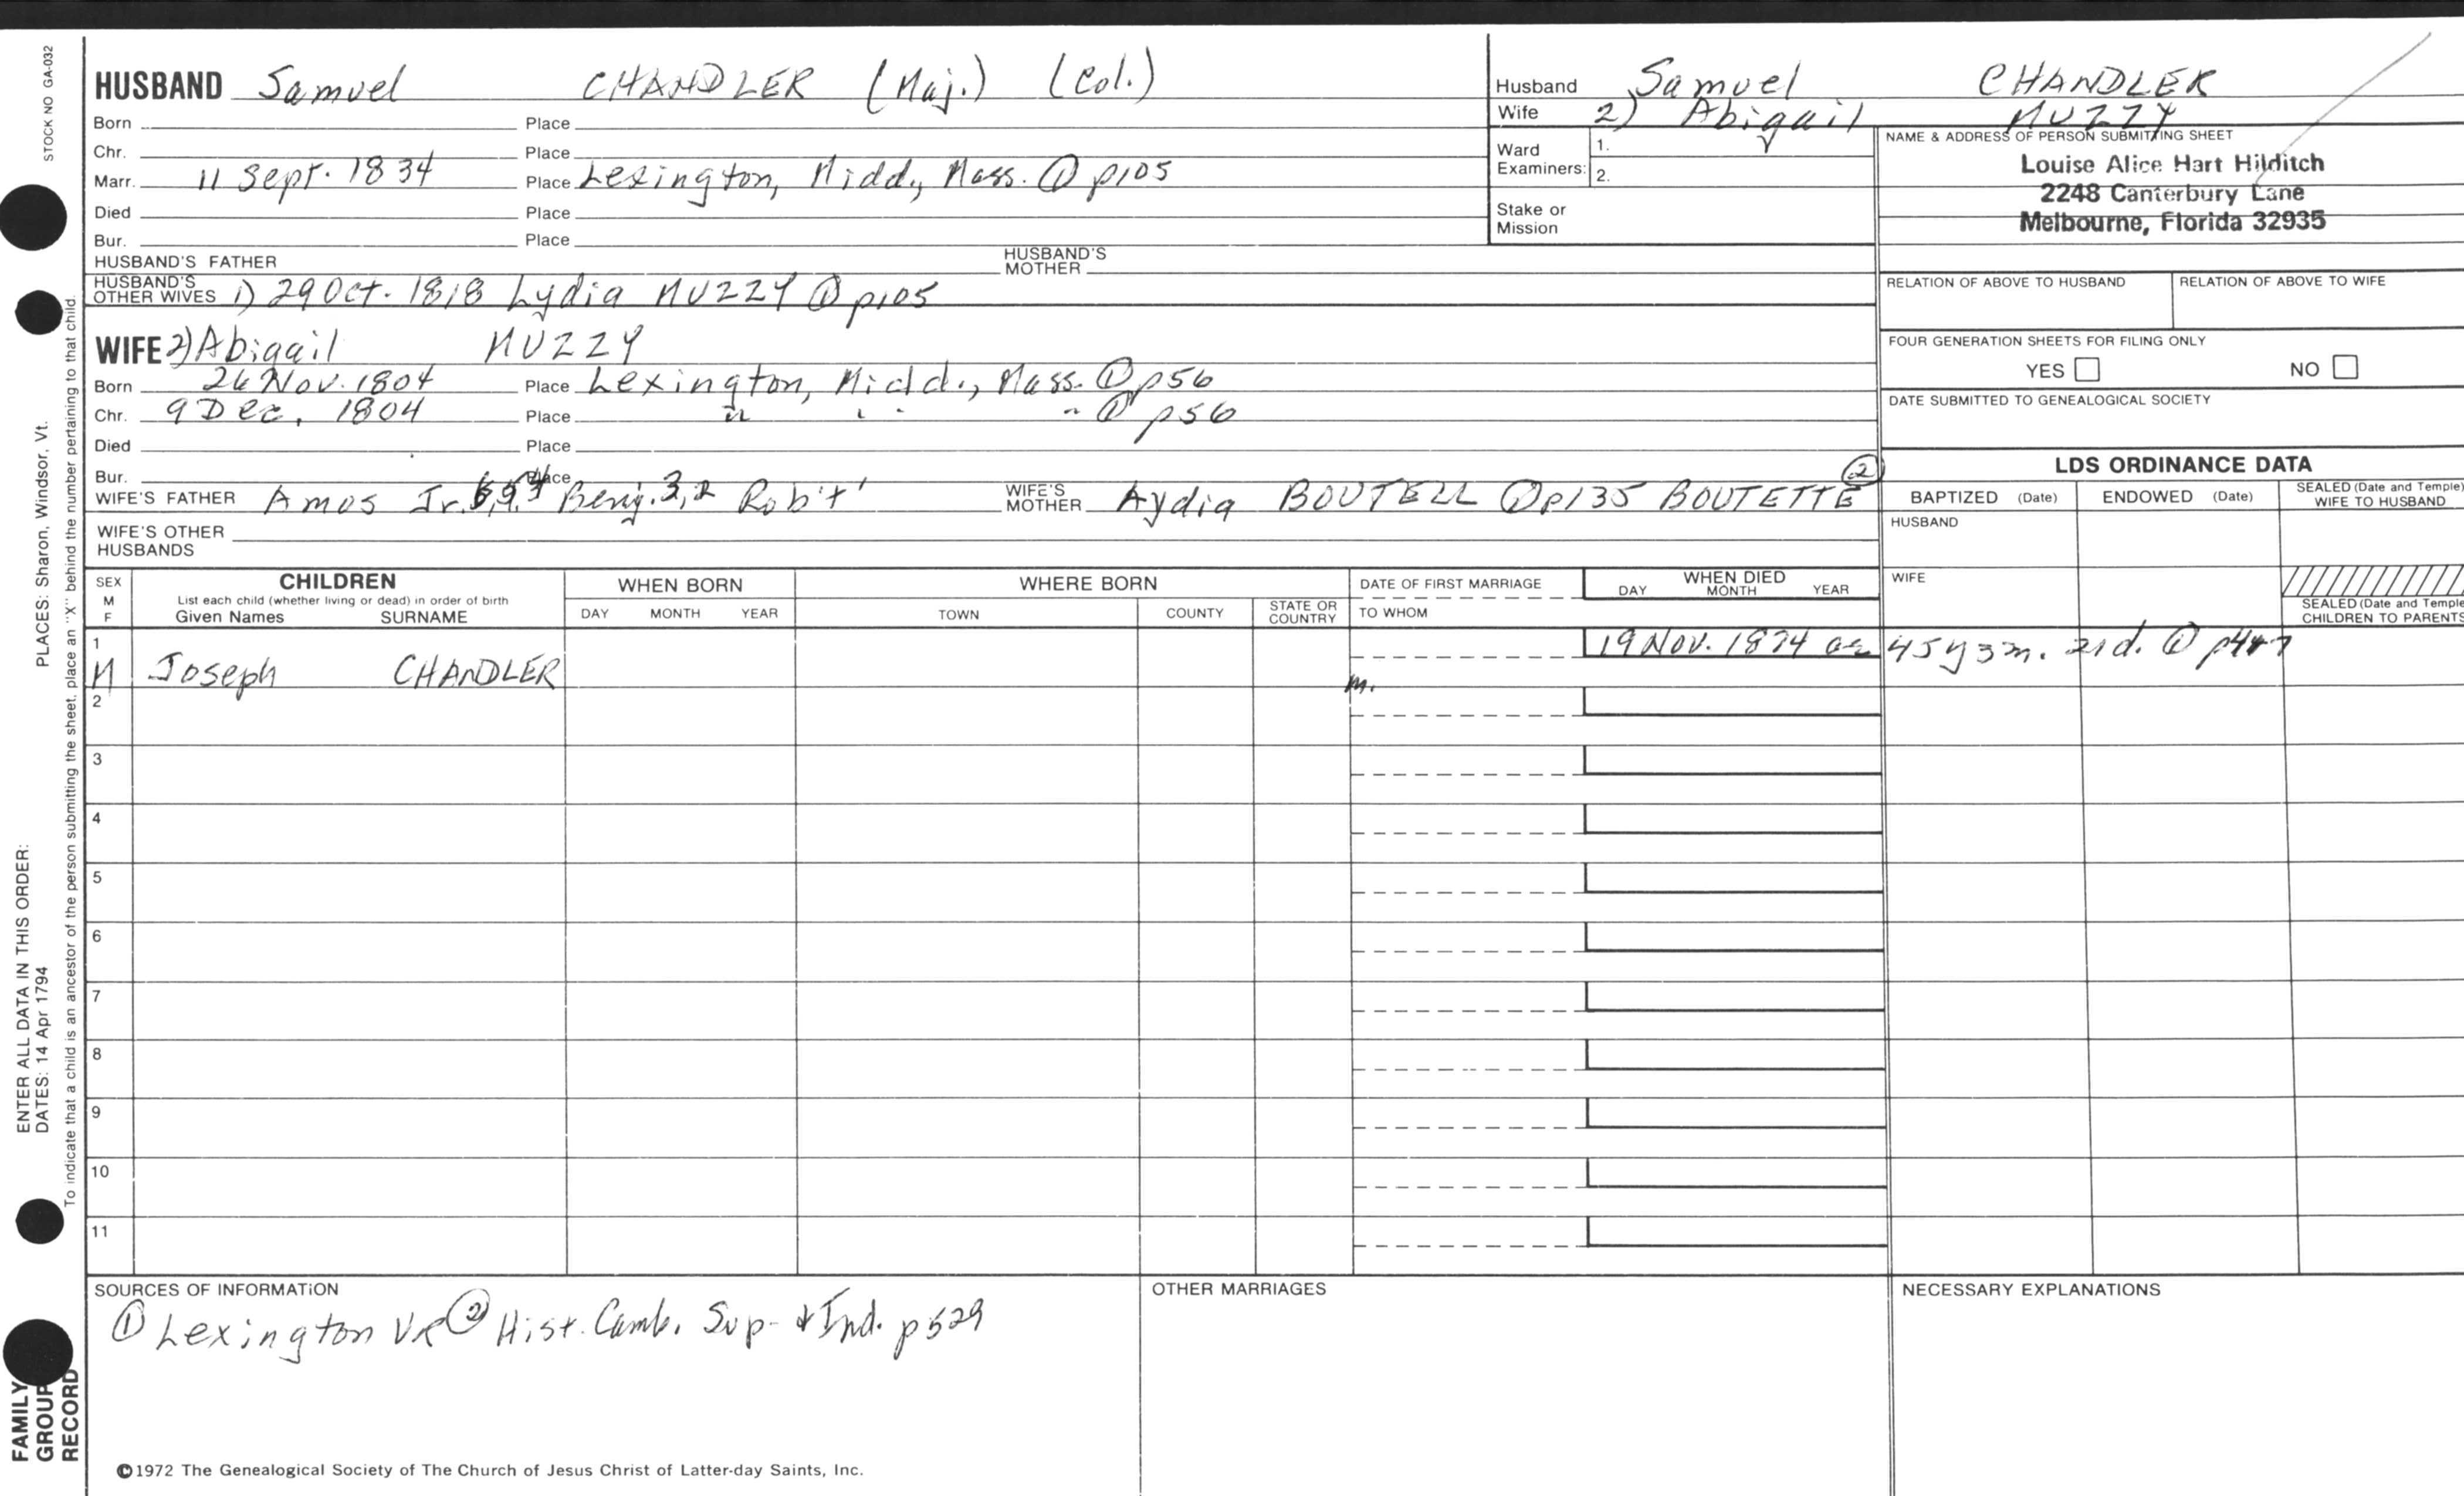 STOCK NO GA-032
HUSBAND Samuel CHANDLER (Maj.) (Col.)
Born Place
Chr. Place
Marr. 11 Sept. 1834 Place Lexington, Midd., Mass. ① p105
Died Place
Bur. Place
HUSBAND'S FATHER HUSBAND'S MOTHER
HUSBAND'S OTHER WIVES 1) 29 Oct. 1818 Lydia MUZZY ① p105
WIFE 2) Abigail MUZZY
Born 26 Nov. 1804 Place Lexington, Midd., Mass. ① p56
Chr. 9 Dec. 1804 Place " " " ① p56
Died Place
Bur. Place
WIFE'S FATHER Amos Jr. Benj. 3,2 Rob't' WIFE'S MOTHER Lydia BOUTELL ① p135 BOUTETTE ②
WIFE'S OTHER HUSBANDS
Husband Samuel CHANDLER
Wife 2) Abigail MUZZY
Ward Examiners: 1.
2.
Stake or Mission
NAME & ADDRESS OF PERSON SUBMITTING SHEET
Louise Alice Hart Hilditch
2248 Canterbury Lane
Melbourne, Florida 32935
RELATION OF ABOVE TO HUSBAND RELATION OF ABOVE TO WIFE
FOUR GENERATION SHEETS FOR FILING ONLY
YES NO
DATE SUBMITTED TO GENEALOGICAL SOCIETY
LDS ORDINANCE DATA
BAPTIZED (Date) ENDOWED (Date) SEALED (Date and Temple) WIFE TO HUSBAND
HUSBAND
WIFE
SEALED (Date and Temple) CHILDREN TO PARENTS
SEX M F
CHILDREN
List each child (whether living or dead) in order of birth
Given Names SURNAME
WHEN BORN
DAY MONTH YEAR
WHERE BORN
TOWN COUNTY STATE OR COUNTRY
DATE OF FIRST MARRIAGE
TO WHOM
WHEN DIED
DAY MONTH YEAR
1 M Joseph CHANDLER 19 Nov. 1874 ae 45y 3m. 21d. ①
m.
2
3
4
5
6
7
8
9
10
11
SOURCES OF INFORMATION
① Lexington VR ② Hist. Camb. Sup. & Ind. p529
OTHER MARRIAGES
NECESSARY EXPLANATIONS
©1972 The Genealogical Society of The Church of Jesus Christ of Latter-day Saints, Inc.
PLACES: Sharon, Windsor, Vt.
ENTER ALL DATA IN THIS ORDER:
DATES: 14 Apr 1794
To indicate that a child is an ancestor of the person submitting the sheet, place an "X" behind the number pertaining to that child.
FAMILY GROUP RECORD